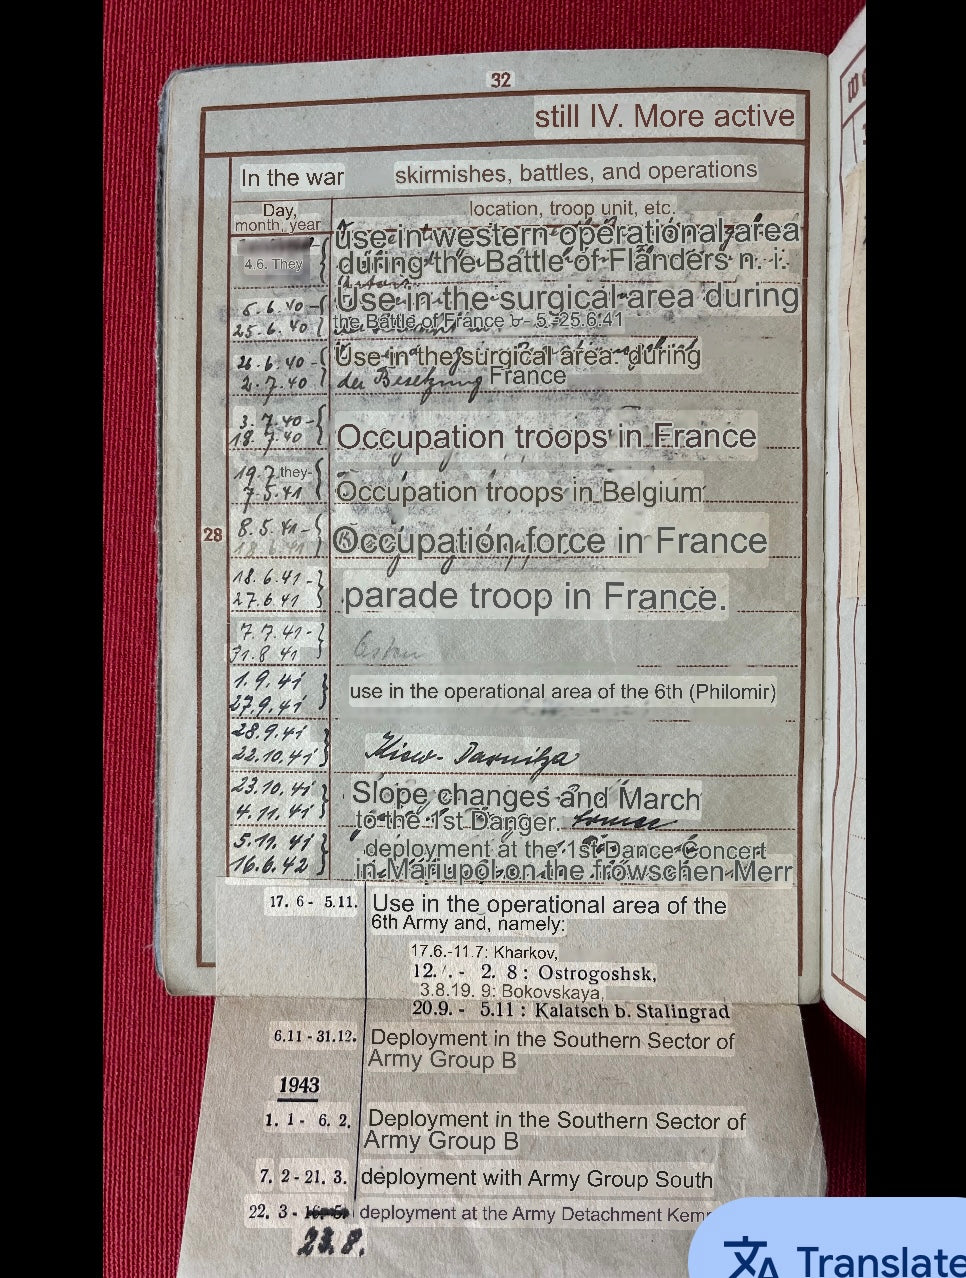 32
still IV. More active
In the war
skirmishes, battles, and operations
Day,
month, year
location, troop unit, etc.
use in western operational area
4.6. They
during the Battle of Flanders n. i.
Artois
5.6.40 -
Use in the surgical area during
25.6.40
the Battle of France 5.-25.6.41
26.6.40 -
Use in the surgical area. during
2.7.40
der Besetzung France
3.7.40 -
18.7.40
Occupation troops in France
19.7 they-
7.5.41
Occupation troops in Belgium
28
8.5.41 -
Occupation force in France
18.6.41 -
27.6.41
parade troop in France.
7.7.41 -
31.8 41
1.9.41
27.9.41
use in the operational area of the 6th (Philomir)
28.9.41
22.10.41
Kiew-Darnitza
23.10.41
Slope changes and March
4.11.41
to the 1st Danger.
5.11.41
deployment at the 1st Dance Concert
16.6.42
in Mariupol on the frowschen Merr
17. 6 - 5.11.
Use in the operational area of the
6th Army and, namely:
17.6.-11.7: Kharkov,
12. . - 2. 8 : Ostrogoshsk,
3.8.19. 9: Bokovskaya,
20.9. - 5.11 : Kalatsch b. Stalingrad
6.11 - 31.12.
Deployment in the Southern Sector of
Army Group B
1943
1. 1 - 6. 2.
Deployment in the Southern Sector of
Army Group B
7. 2 - 21. 3.
deployment with Army Group South
22. 3 -
deployment at the Army Detachment Kemp
23.8.
Translate